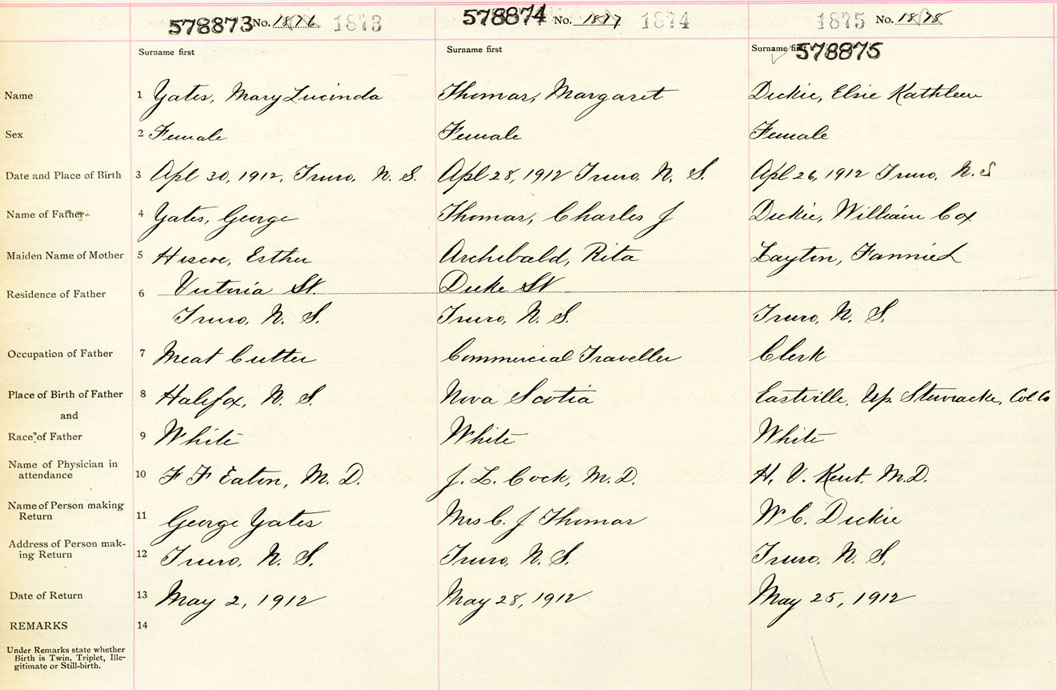 578873 No. 1876 1873 578874 No. 1877 1874 1875 No. 1878
Surname first Surname first Surname first 578875
Name 1 Yates, Mary Lucinda Thomas, Margaret Dickie, Elsie Kathleen
Sex 2 Female Female Female
Date and Place of Birth 3 Apl 30, 1912, Truro, N. S. Apl 28, 1912 Truro, N. S. Apl 26, 1912 Truro, N. S
Name of Father 4 Yates, George Thomas, Charles J Dickie, William Cox
Maiden Name of Mother 5 Hiscoe, Esther Archibald, Rita Layton, Fannie L
Residence of Father 6 Victoria St. Duke St
Truro, N. S. Truro, N. S. Truro, N. S.
Occupation of Father 7 Meat Cutter Commercial Traveller Clerk
Place of Birth of Father 8 Halifax, N. S. Nova Scotia Eastville, Up Stewiacke, Col Co
and
Race of Father 9 White White White
Name of Physician in
attendance 10 F F Eaton, M. D. J. L. Cock, M. D. H. V. Kent, M. D.
Name of Person making
Return 11 George Yates Mrs C. J Thomas W C. Dickie
Address of Person mak-
ing Return 12 Truro, N. S. Truro, N. S. Truro, N. S.
Date of Return 13 May 2, 1912 May 28, 1912 May 25, 1912
REMARKS 14
Under Remarks state whether
Birth is Twin, Triplet, Ille-
gitimate or Still-birth.